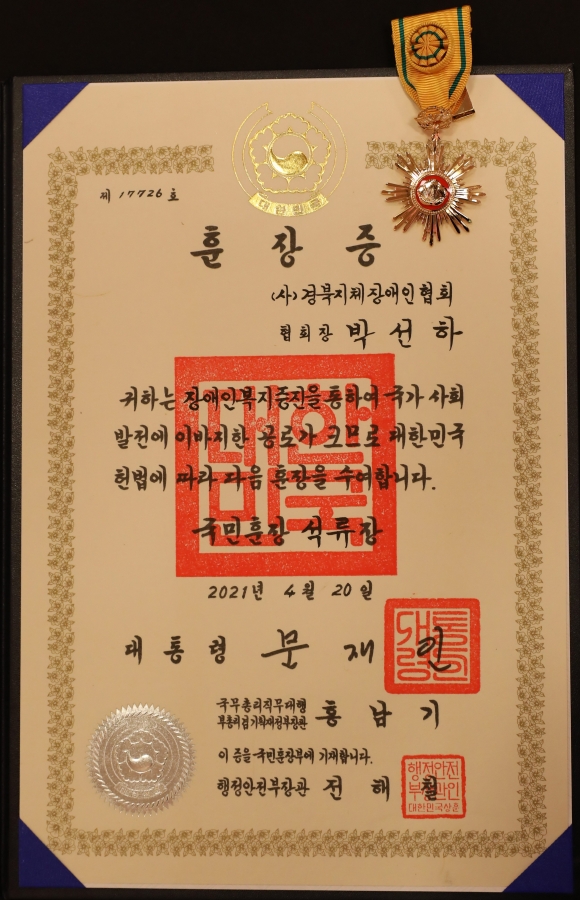 대한민국
제 17726 호
훈장증
(사)경북지체장애인협회
협회장 박선하
귀하는 장애인복지증진을 통하여 국가 사회
발전에 이바지한 공로가 크므로 대한민국
헌법에 따라 다음 훈장을 수여합니다.
국민훈장 석류장
2021년 4월 20일
대통령 문재인
국무총리직무대행
부총리겸기획재정부장관 홍남기
이 증을 국민훈장부에 기재합니다.
행정안전부장관 전해철
대한민국
대통령인
행정안전
부장관인
대한민국상훈